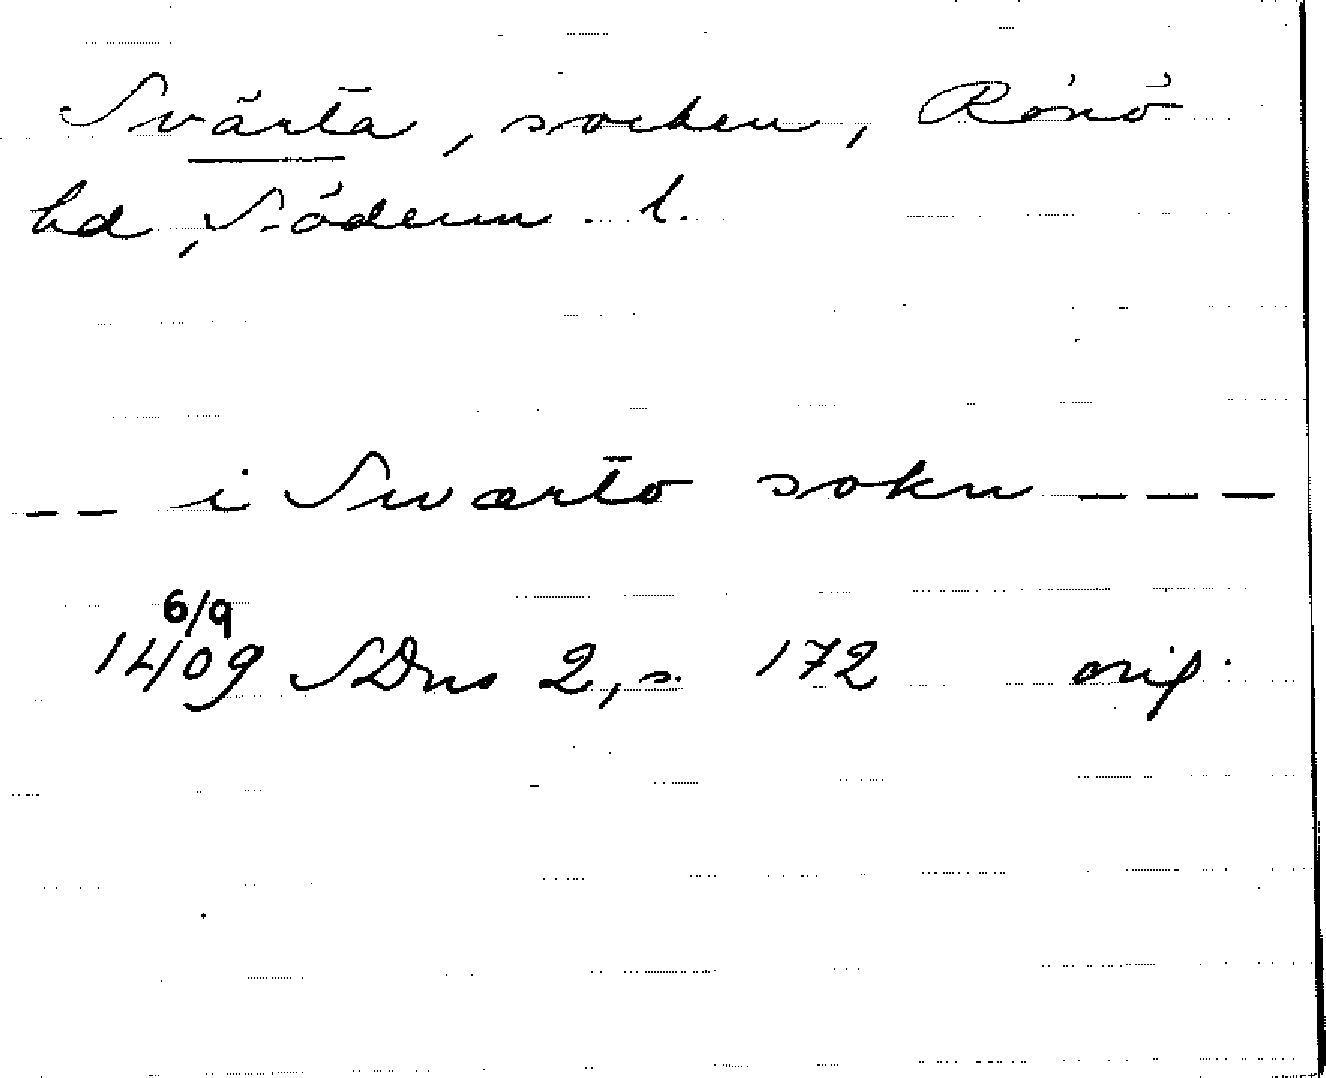 Svärta, socken, Rönö
hd, Söderm. l.
-- i Swærto sokn ---
6/9
1409 SDns 2, s. 172 orig.